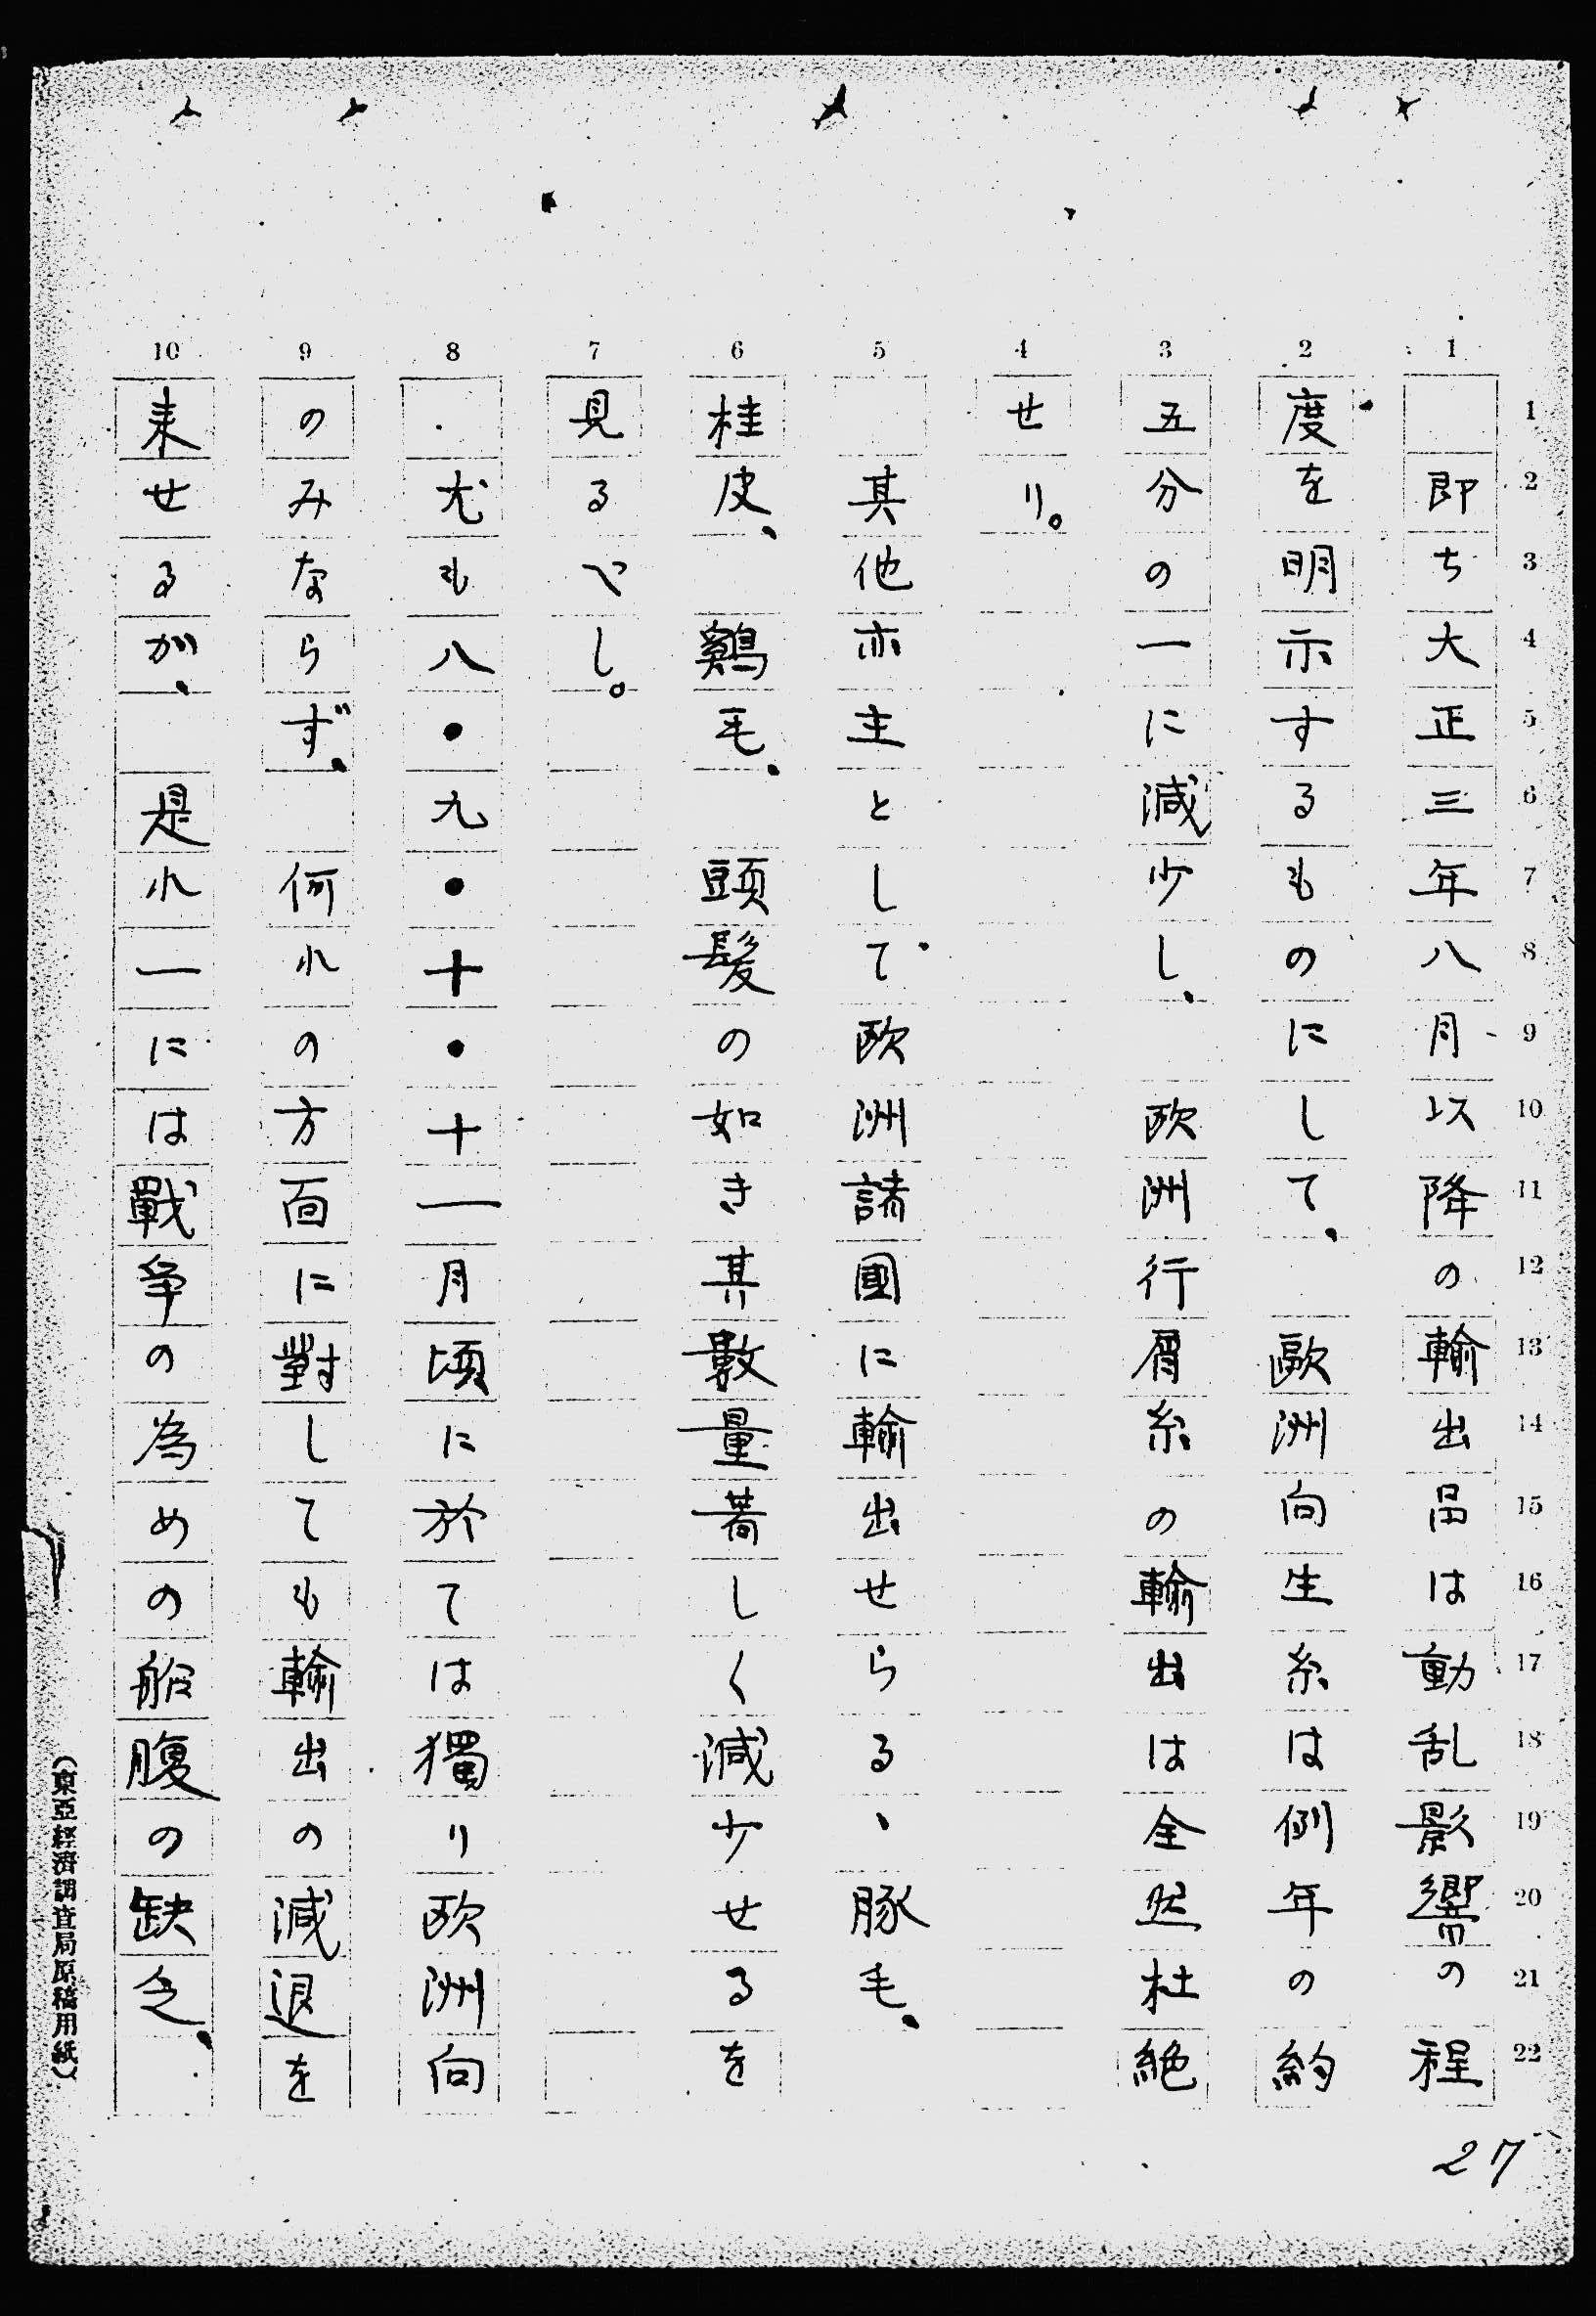 即ち大正三年八月以降の輸出品は動乱影響の程
度を明示するものにして、歐洲向生糸は例年の約
五分の一に減少し、欧洲行屑糸の輸出は全然杜絶
せり。
其他亦主として欧洲諸國に輸出せらる、豚毛、
桂皮、鷄毛、頭髪の如き其數量著しく減少せるを
見るべし。
尤も八・九・十・十一月頃に於ては獨り欧洲向
のみならず、何れの方面に對しても輸出の減退を
来せるが、是れ一には戰争の為めの船腹の缺乏、
27
(東亞経濟調査局原稿用紙)